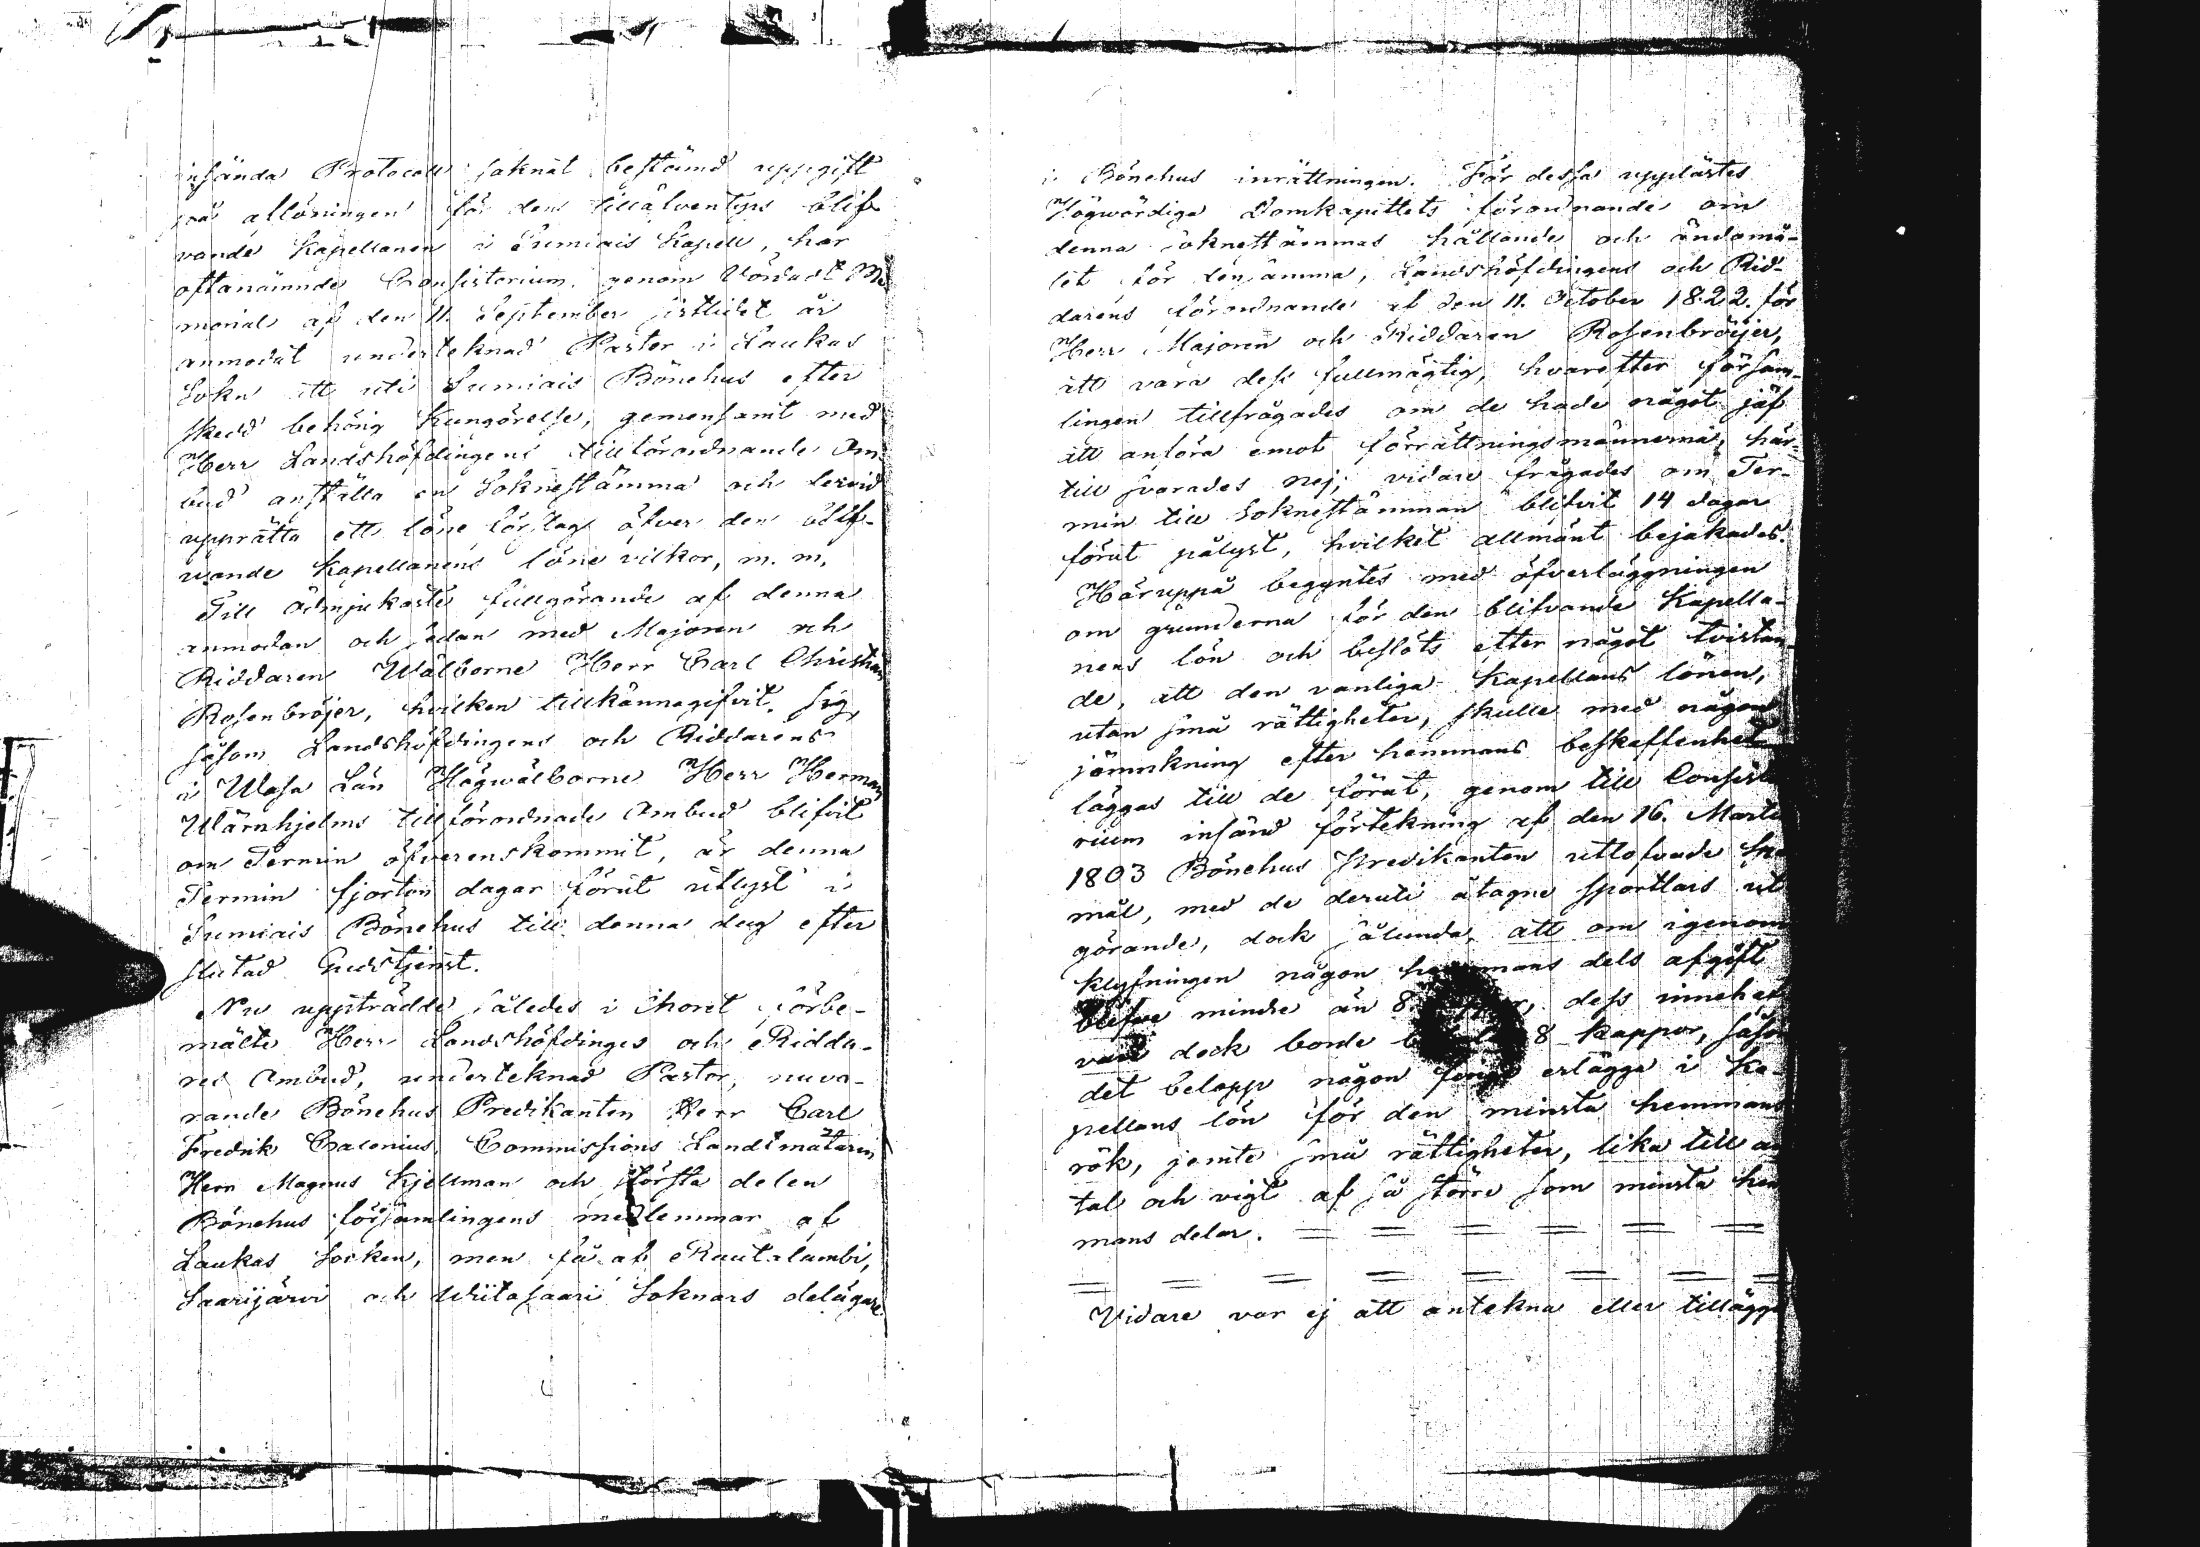 insända Protocoll saknat bestämd uppgift
på aflöningen för den tilläfventyrs blif
vande Kapellanen i Sumiais Kapell, har
oftanämnde Consistorium genom Vördadt Me
morial af den 11. September sistlidet år
anmodat underteknad Pastor i Laukas
Sokn att uti Sumiais Bönehus efter
skedd behörig Kungörelse, gemensamt med
Herr Landshöfdingens tillförordnande Om
bud anställa en Soknestämma och dervid
upprätta ett löne förslag öfver den blif-
wande Kapellanens löne vilkor, m. m.
Till ödmjukaste fullgörande af denna
anmodan och sedan med Majoren och
Riddaren Wälborne Herr Carl Christian
Rosenbröijer, hvilken tillkännagifvit sig,
såsom Landshöfdingens och Riddarens
i Wasa Län Högwälborne Herr Herman
Wärnhjelms tillförordnade Ombud blifvit
om Termin öfverenskommit, är denna
Termin fjorton dagar förut utlyst i
Sumiais Bönehus till denna dag efter
slutad Gudstjenst.
Nu uppträdde således i Choret förbe-
mälte Herr Landshöfdinges och Ridda-
res Ombud, underteknad Pastor, nuva-
rande Bönehus Predikanten Herr Carl
Fredrik Calonius, Commissions Landtmätaren
Herr Magnus Kjellman och största delen
Bönehus församlingens medlemmar af
Laukas Socken, men få af Rautalambi,
Saarijärvi och Wiitasaari Soknars delägare
i Bönehus inrättningen. För dessa upplästes
Högwördiga Domkapittlets förordnande om
denna soknestämmas hållande och ändamå-
let för densamma, Landshöfdingens och Rid-
darens förordnande af den 11. October 1822. för
Herr Majoren och Riddaren Rosenbröijer,
att vara dess fullmägtig, hvarefter försam-
lingen tillfrågades om de hade något jäf
att anföra emot förrättningsmännerna, här-
till svarades nej; vidare frågades om Ter-
min till Soknestämman blifvit 14 dagar
förut pålyst, hvilket allmänt bejakades.
Häruppå begyntes med öfverläggningen
om grunderna för den blifvande Kapella-
nens lön och beslöts efter något tvistan
de, att den vanliga Kapellans lönen,
utan små rättigheter, skulle med någon
jämnkning efter hemmans beskaffenhet
läggas till de förut, genom till Consisto
rium insänd förtekning af den 16. Martii
1803 Bönehus Predikanten utlofvade
mål, med de deruti åtagne Sportlars ut
görande, dock sålunda, att om igenom
klyfningen någon hemmans dels afgift
blefve mindre än 8 dess inneha
vare dock borde 8 kappor, såsom
det belopp någon finge erlägga i Ka-
pellans lön för den minsta hemmans
rök, jemte små rättigheter, lika till an
tal och vigt af så större som minsta hem
mans delar.
Vidare var ej att antekna eller tillägga